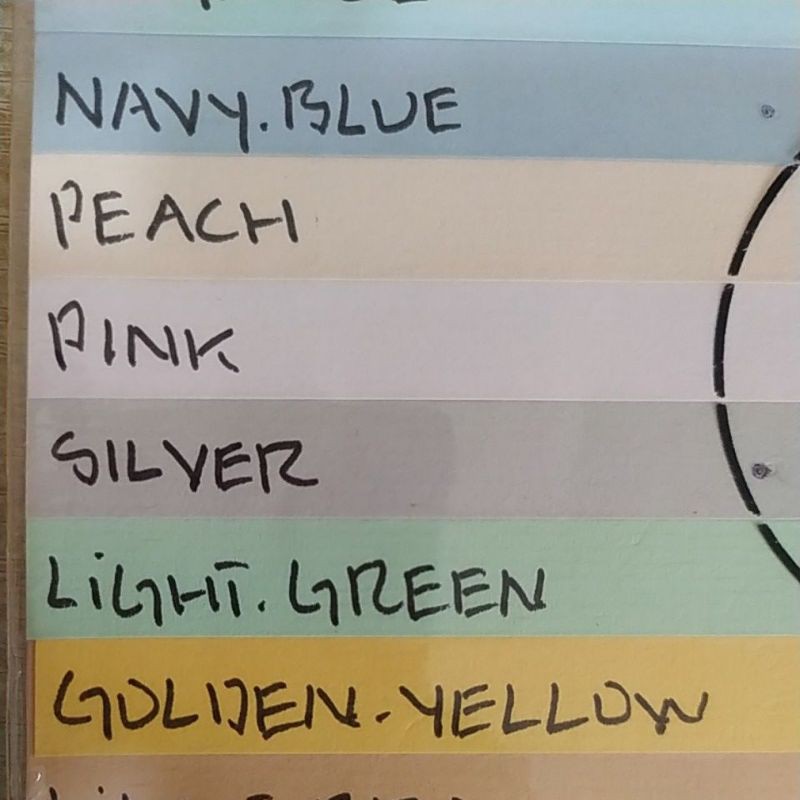 NAVY.BLUE
PEACH
PINK
SILVER
LiGHT. GREEN
GOLDEN-YELLOW